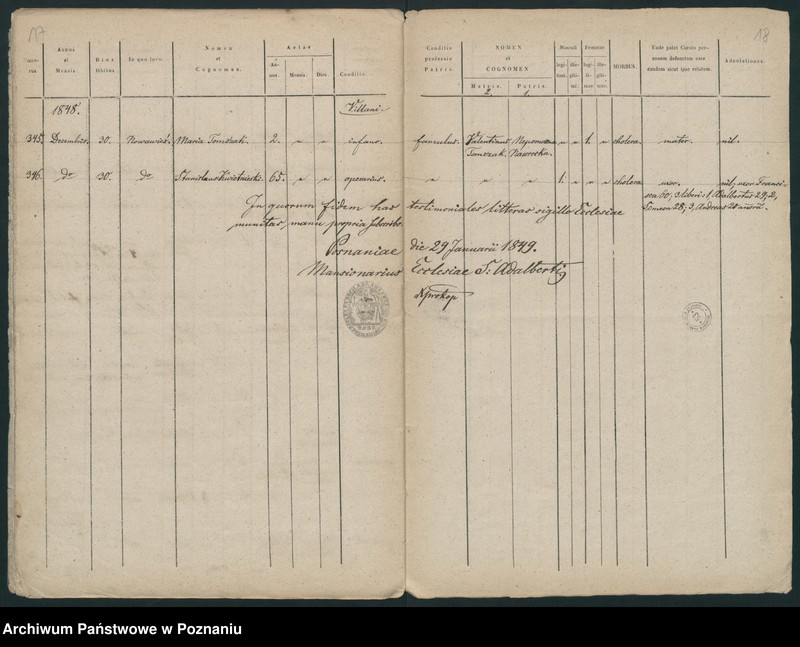 17
18
Annus et Mensis.
Dies Obitus
In quo loco.
Nomen et Cognomen.
Aetas
Annus. Mensis. Dies.
Conditio.
Conditio professio Patris.
NOMEN et COGNOMEN
Matris. Patris.
2. 1.
Masculi Feminae
legitimi. illegitimi. legitimae illegitimae.
MORBUS.
Unde patet Curato personam defunctam esse eandem sicut quae relatum.
Adnotationes.
1848.
Villani.
345. Decembris. 30. Nowawieś. Maria Tomczak. 2. " " infans. famulus. Valentinus Tomczak. Nepomucena Nawrocka. " " 1. " cholera mater. nil.
346. do 30. do Stanislaus Kwiotniecki. 65. " " operarius. " " " 1. " " " cholera uxor. nil; uxor Francisca 60, 3 liberi 1 Adalbertus 29; 2, Simeon 28; 3, Andreas 20 annor.
In quorum fidem has testimoniales litteras sigillo Ecclesiae
munitas manu propria subscribo.
Posnaniae die 29 Januarii 1849.
Mansionarius Ecclesiae S. Adalberti
Prokop
Archiwum Państwowe w Poznaniu